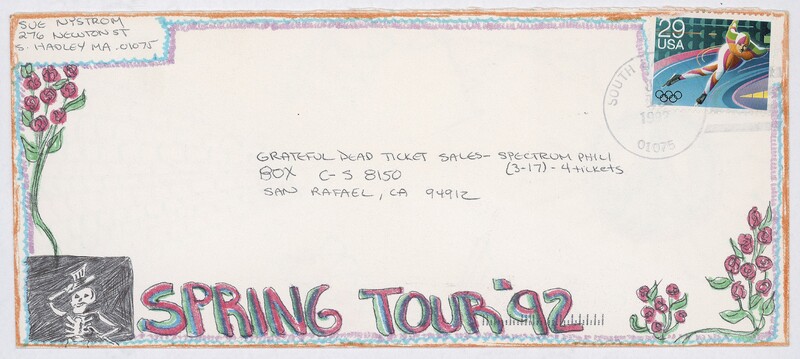 SUE NYSTROM
276 NEWTON ST
S. HADLEY MA. 01075
29
USA
SOUTH
1992
01075
GRATEFUL DEAD TICKET SALES - SPECTRUM PHILI
BOX C-S 8150 (3-17) - 4 tickets
SAN RAFAEL, CA 94912
SPRING TOUR '92